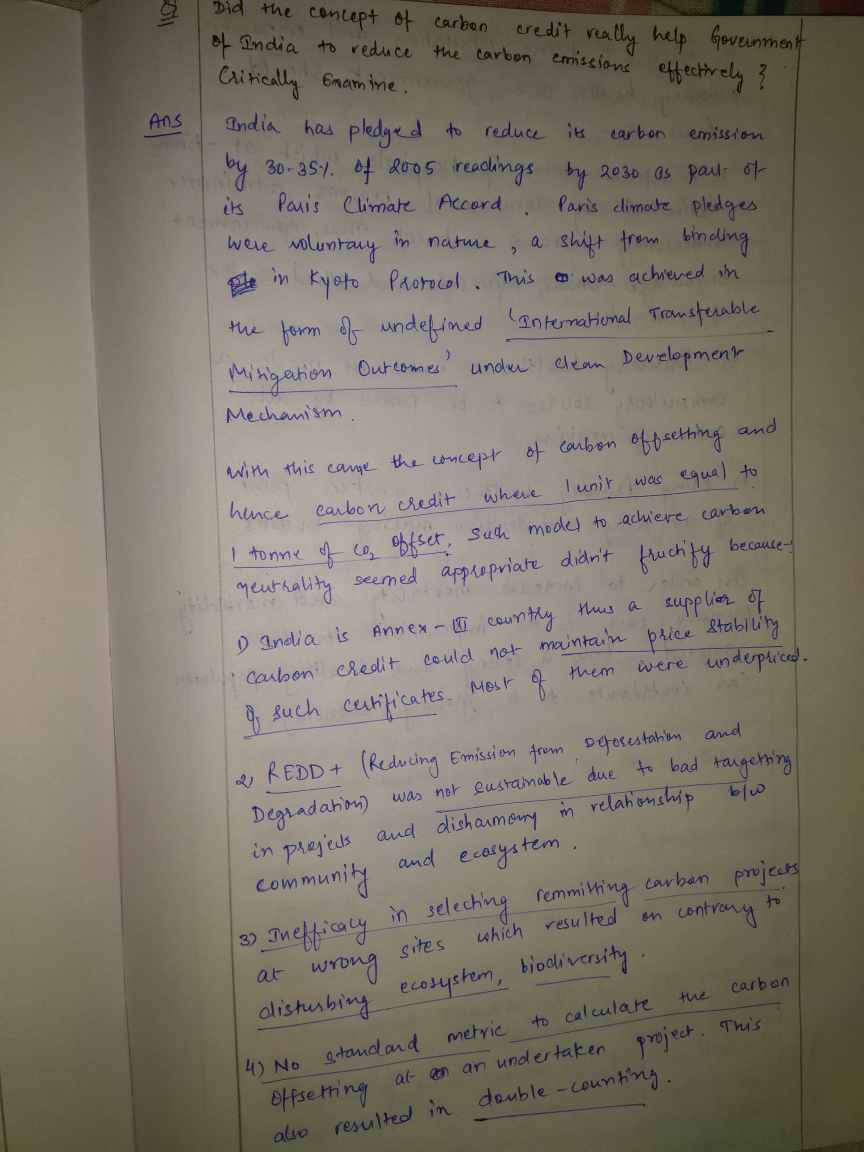 Q Did the concept of carbon credit really help Government
of India to reduce the carbon emissions effectively ?
Critically Examine.
Ans India has pledged to reduce its carbon emission
by 30-35% of 2005 readings by 2030 as part of
its Paris Climate Accord. Paris climate pledges
were voluntary in nature, a shift from binding
in Kyoto Protocol. This was achieved in
the form of undefined 'International Transferable
Mitigation Outcomes' under Clean Development
Mechanism.
With this came the concept of carbon offsetting and
hence carbon credit where 1 unit was equal to
1 tonne of CO2 offset. Such model to achieve carbon
neutrality seemed appropriate didn't fructify because-:
1) India is Annex-III country thus a supplier of
carbon credit could not maintain price stability
of such certificates. Most of them were underpriced.
2) REDD+ (Reducing Emission from Deforestation and
Degradation) was not sustainable due to bad targetting
in projects and disharmony in relationship b/w
community and ecosystem.
3) Inefficacy in selecting remmitting carbon projects
at wrong sites which resulted on contrary to
disturbing ecosystem, biodiversity.
4) No standard metric to calculate the carbon
offsetting at an undertaken project. This
also resulted in double-counting.